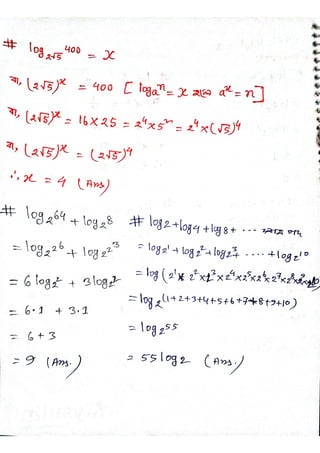 # log₂√₅ 400 = x
বা, (2√5)ˣ = 400 [logₐn = x হলে aˣ = n]
বা, (2√5)ˣ = 16 × 25 = 2⁴ × 5² = 2⁴ × (√5)⁴
বা, (2√5)ˣ = (2√5)⁴
∴ x = 4 (Ans)
# log₂64 + log₂8
= log₂2⁶ + log₂2³
= 6 log₂2 + 3 log₂2
= 6·1 + 3·1
= 6 + 3
= 9 (Ans.)
# log2 + log4 + log8 + ···
= log2¹ + log2² + log2³ + ···· + log2¹⁰
= log (2¹ × 2² × 2³ × 2⁴ × 2⁵ × 2⁶ × 2⁷ × 2⁸ × 2⁹ × 2¹⁰)
= log2⁽¹⁺²⁺³⁺⁴⁺⁵⁺⁶⁺⁷⁺⁸⁺⁹⁺¹⁰⁾
= log2⁵⁵
= 55 log2 (Ans.)